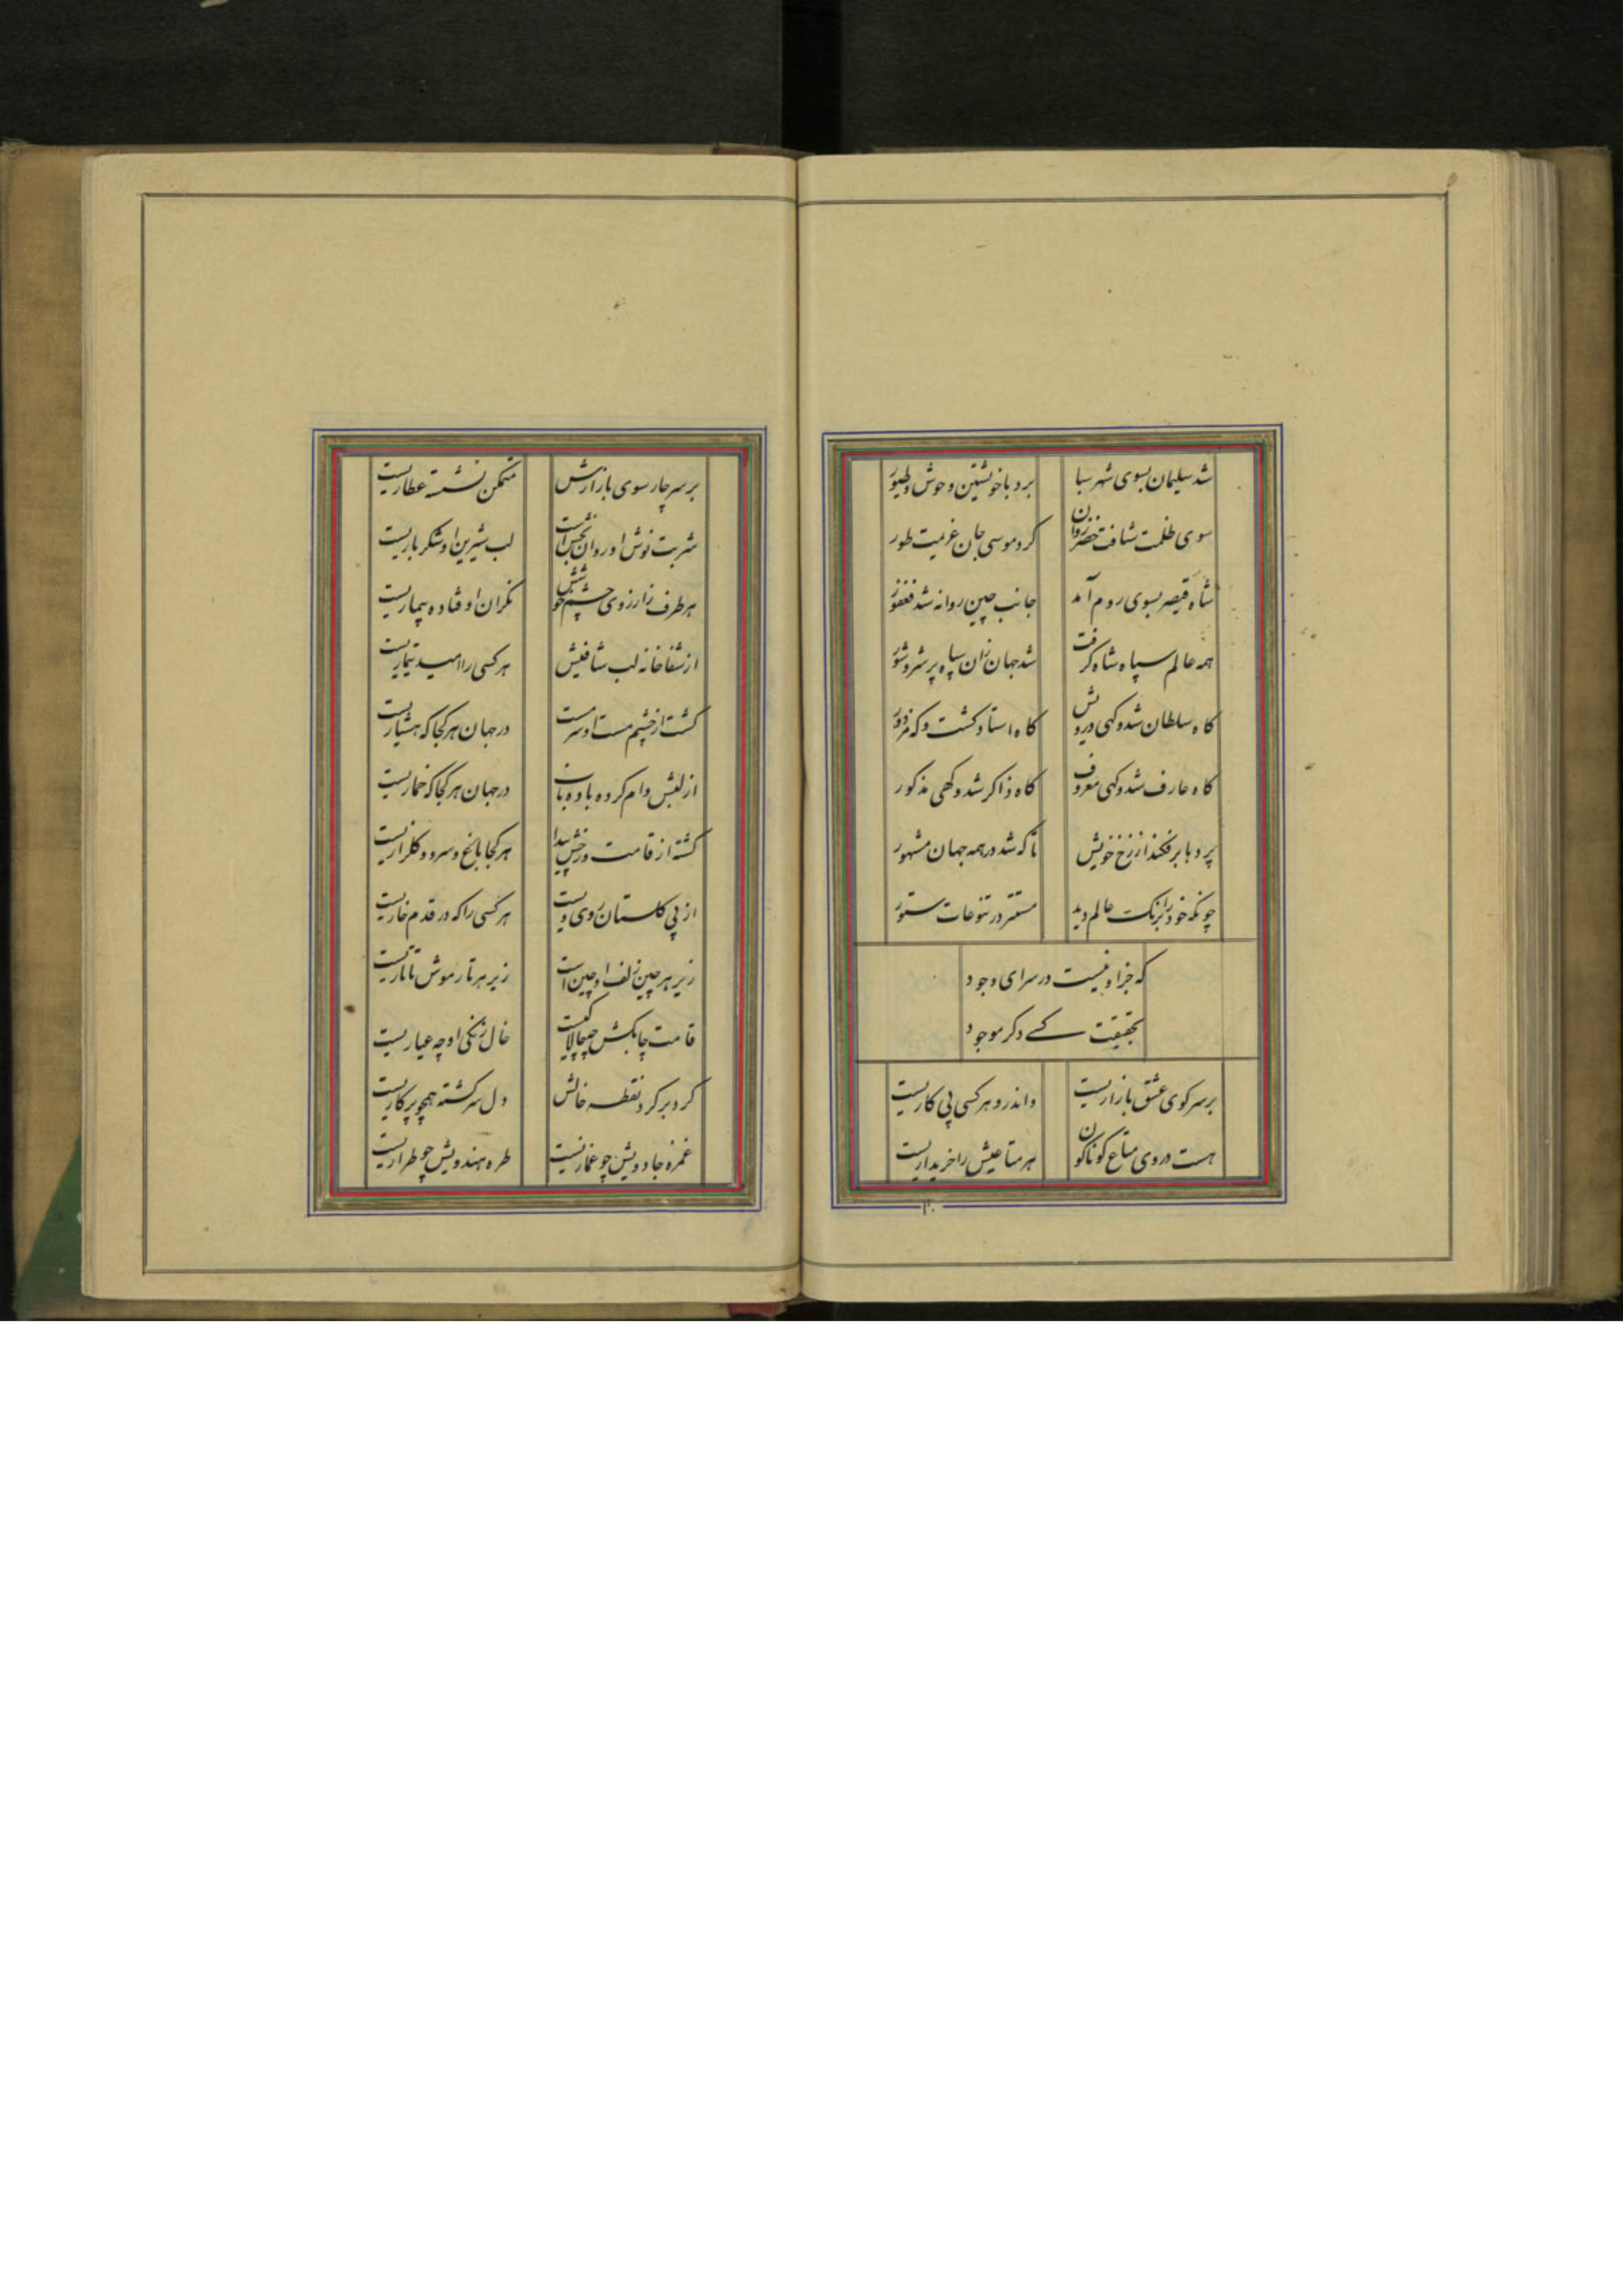 شد سلیمان بسوی شهر سبا برد با خویشتن وحوش و طیور
سوی ظلمت شتافت خضر روان کرد موسی جان عزیمت طور
شاه قیصر بسوی روم آمد جانب چین روانه شد فغفور
همه عالم سپاه شاه گرفت شد جهان زان سپاه پر شر و شور
کاه سلطان شد و کهی درویش کاه استاد کشت و که مزدور
کاه عارف شد و کهی معروف کاه ذاکر شد و کهی مذکور
پردها برفکند از رخ خویش تا که شد در همه جهان مشهور
چونکه خود را برنک عالم دید مستتر در تنوعات ستور
که جز او نیست در سرای وجود
بحقیقت کسے دکر موجود
بر سر کوی عشق بازاریست واندرو هر کسی پی کاریست
هست در وی متاع کوناکون هر متاعیش را خریداریست
بر سر چار سوی بازارش متمکن نشسته عطاریست
شربت نوش او روان بخش است لب شیرین او شکرباریست
هر طرف ز آرزوی چشم خوشش نکران اوفتاده بیماریست
از شفاخانه لب شافیش هر کسی را امید تیماریست
کشت از چشم مست او سرمست در جهان هر کجا که هشیاریست
از لبش وام کرده باده ناب در جهان هر کجا که خماریست
کشته از قامت و رخش پیدا هر کجا باغ و سرو و کلزاریست
از پی کلستان روی ویست هر کسی را که در قدم خاریست
زیر هر چین زلف او چین است زیر هر تار موش تاتاریست
قامت چابکش چه چالاکیست خال زنکی او چه عیاریست
کرد بر کرد نقطه خالش دل سرکشته همچو پرکاریست
غمزه جادویش چو غمازیست طره هندویش چو طراریست